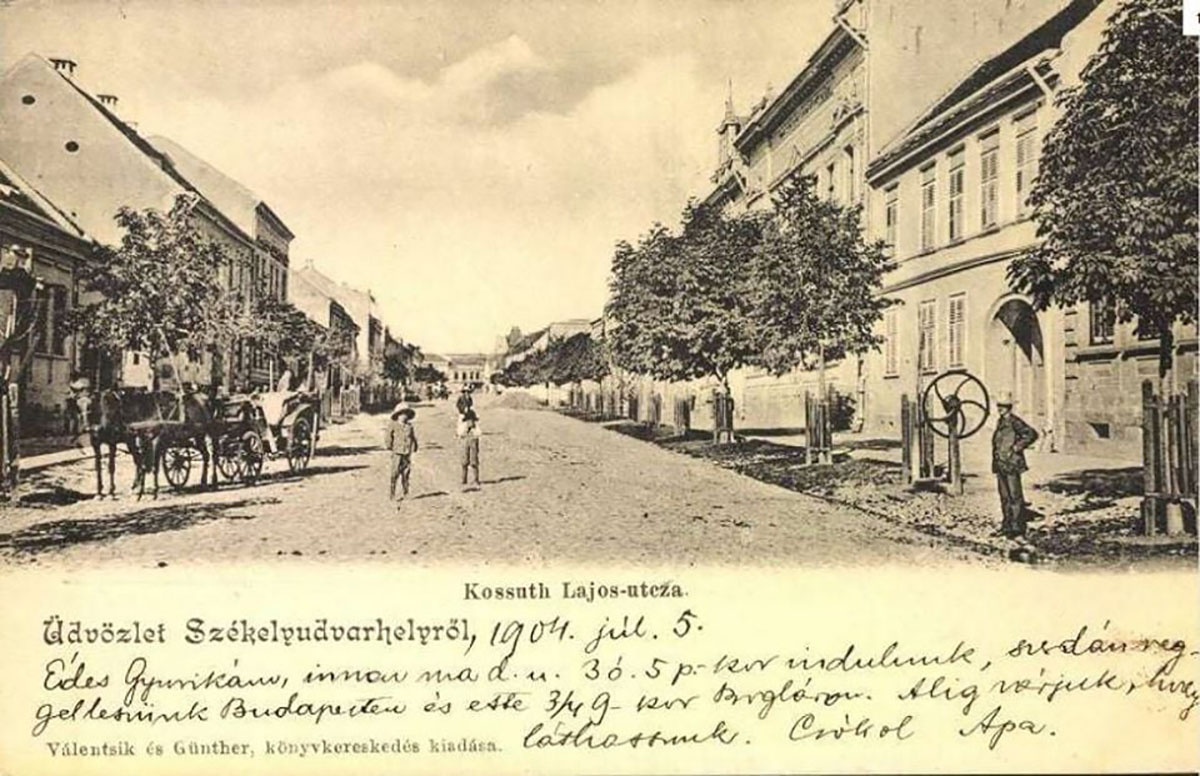 Kossuth Lajos-utcza.
Üdvözlet Székelyudvarhelyről, 1904. júl. 5.
Édes Gyurikám, innen ma d. u. 3 ó. 5 p.-kor indulunk, szerdán reg-
gel leszünk Budapesten és este 3/4 9-kor Bogláron. Alig várjuk, hogy
láthassunk. Csókol Apa.
Válentsik és Günther, könyvkereskedés kiadása.